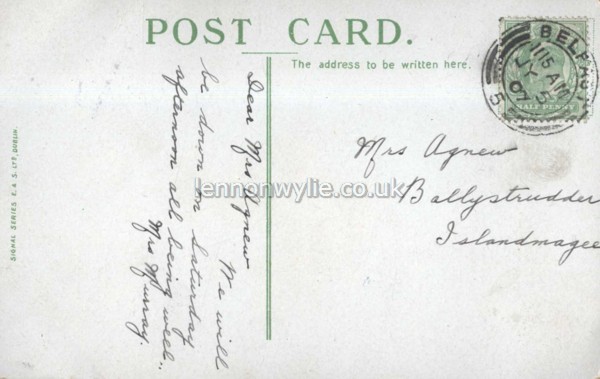 POST CARD.
The address to be written here.
BELFAST
11 15 AM
JY 5
07
5
HALF PENNY
Dear Mrs Agnew
We will
be down on Saturday
afternoon all being well..
Mrs Murray.
Mrs Agnew
Ballystrudder
Islandmagee
SIGNAL SERIES. E. & S. LTD, DUBLIN.
lennonwylie.co.uk